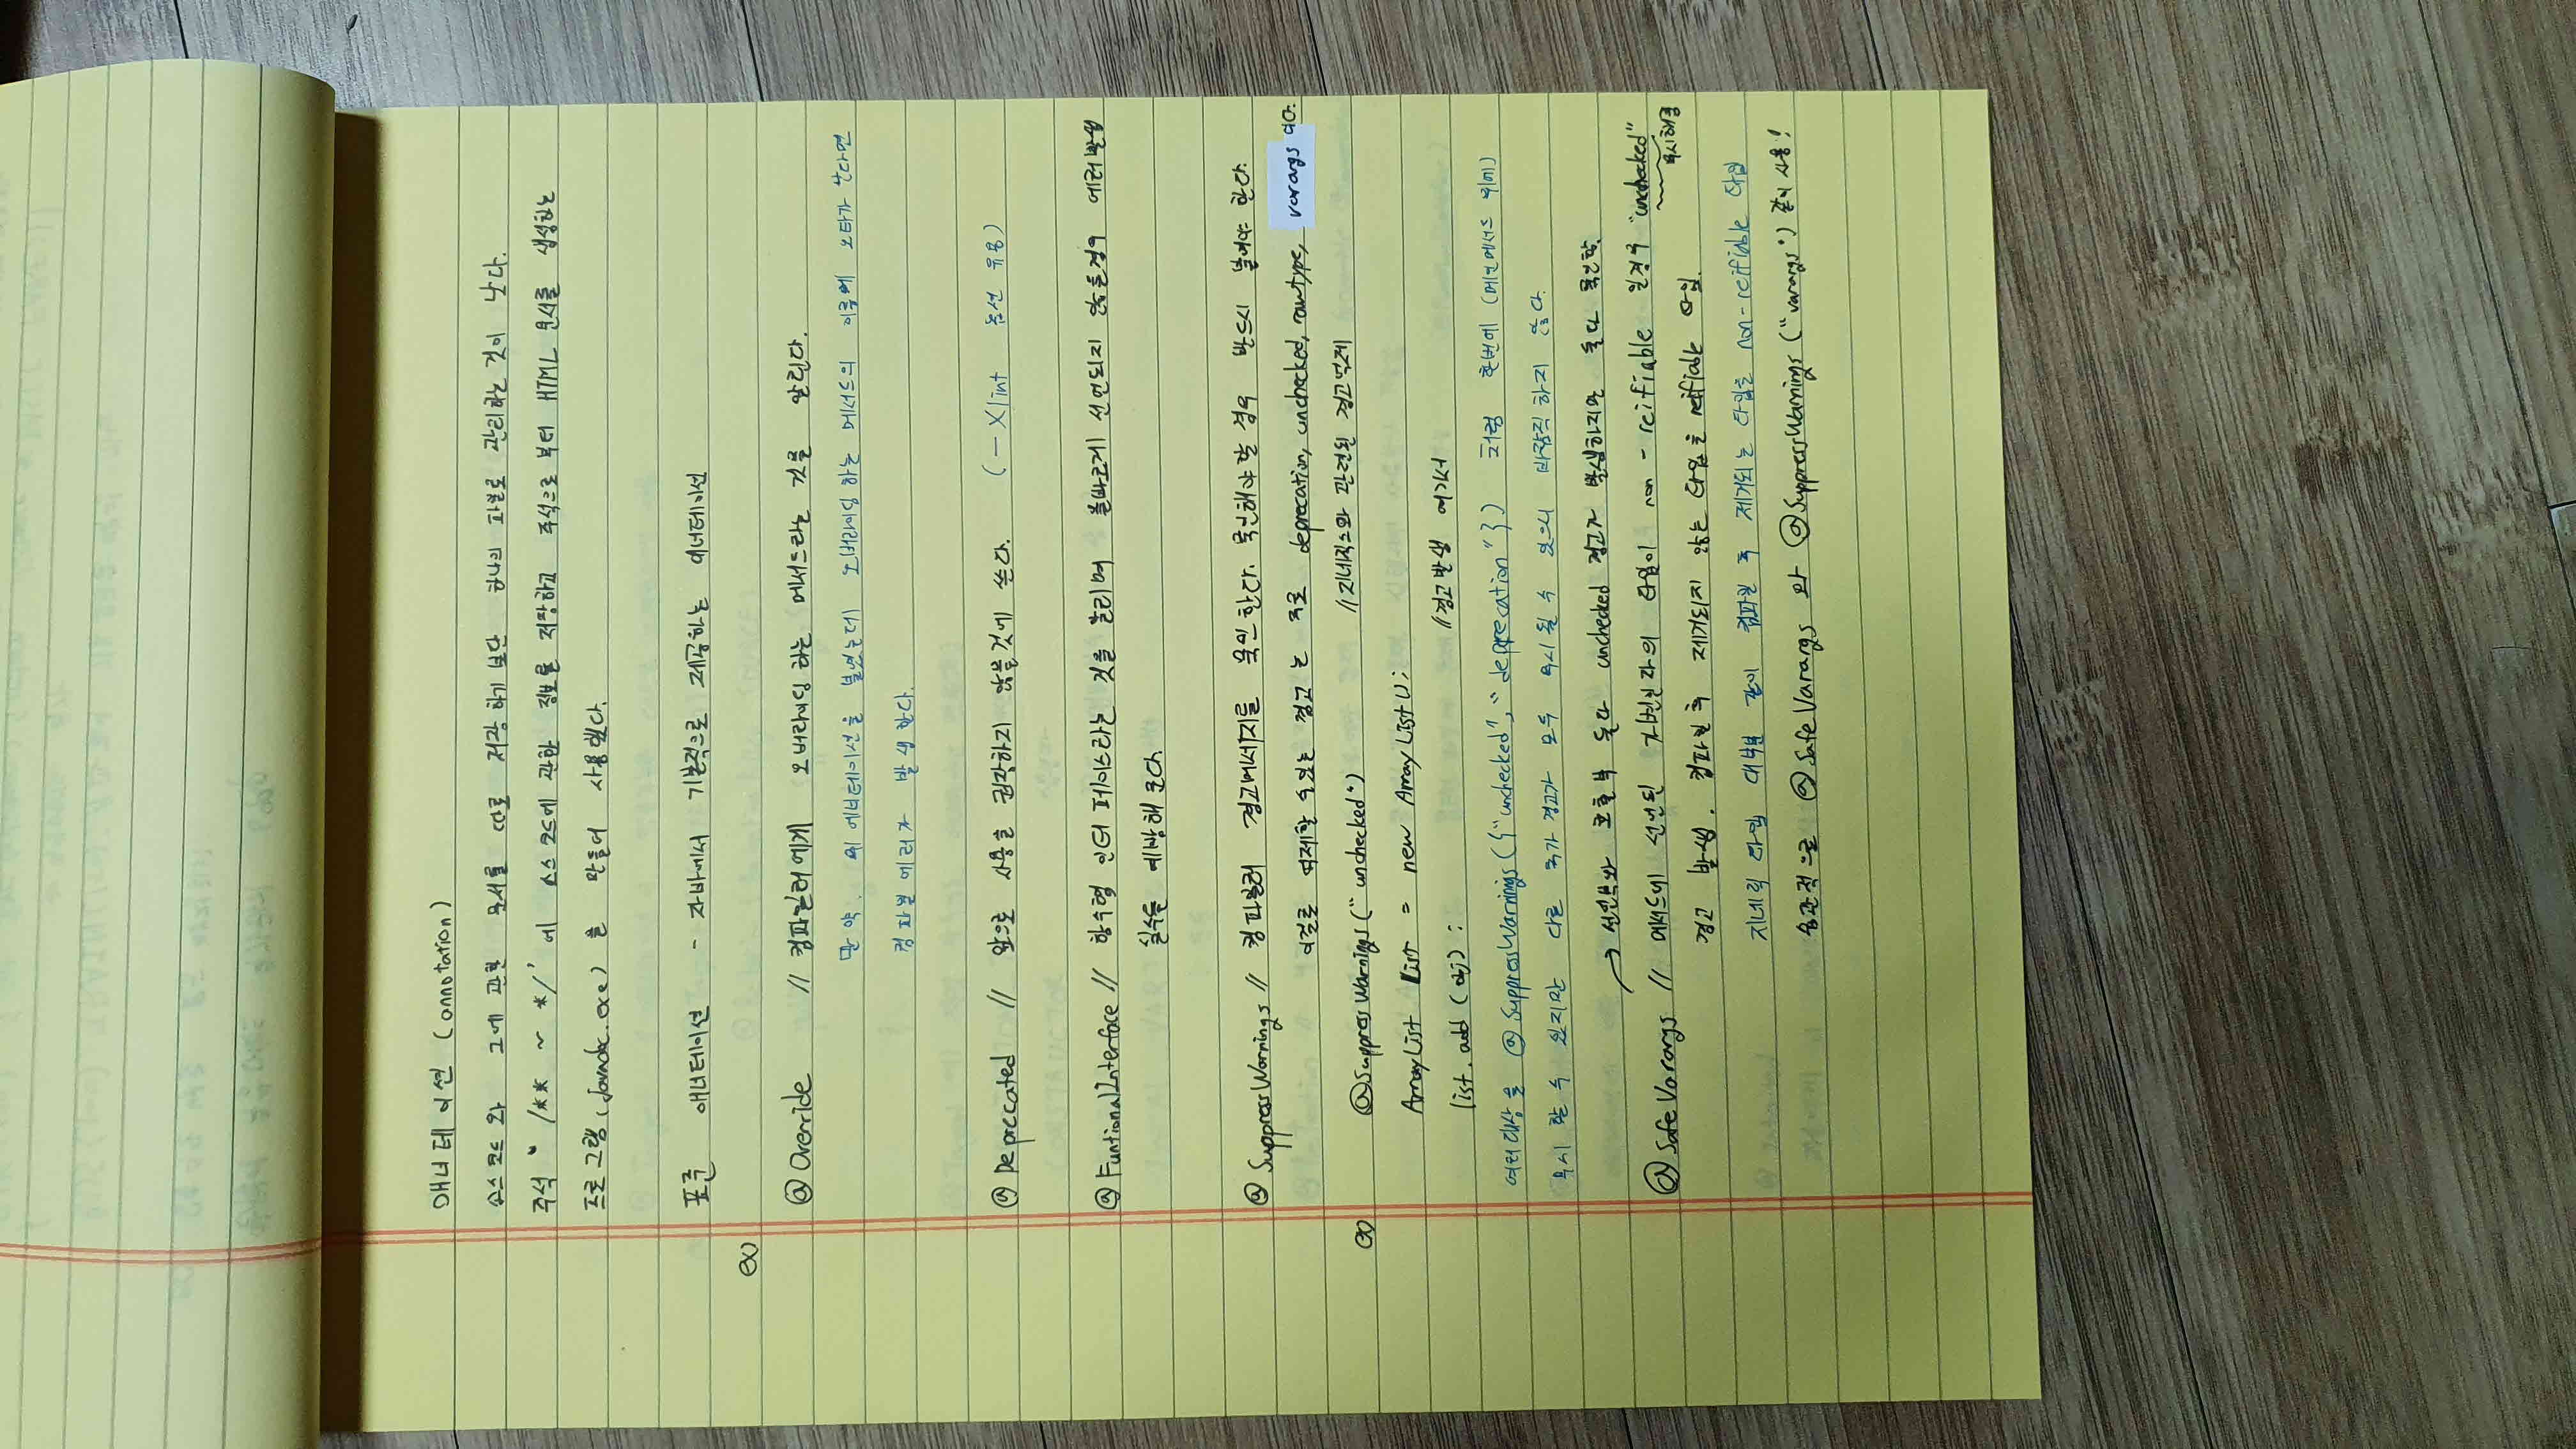 애너테이션 (annotation)
소스코드와 그에 관한 문서를 따로 저장하기 보단 하나의 파일로 관리하는 것이 낫다.
주석 ‘ /** ~ */ ’ 에 소스코드에 관한 정보를 저장하고 주석으로 부터 HTML 문서를 생성하는
프로그램(javadoc.exe) 을 만들어 사용했다.
표준 애너테이션 - 자바에서 기본적으로 제공하는 애너테이션
ex)
@ Override // 컴파일러에게 오버라이딩 하는 메서드라는 것을 알린다.
만약. 위 에너테이션을 붙였는데 오버라이딩 하는 메서드의 이름에 오타가 난다면
컴파일 에러가 발생한다.
@ Deprecated // 앞으로 사용을 권장하지 않을것에 쓴다. (-Xlint 옵션 유용)
@ FuntionalInterface // 함수형 인터페이스라는 것을 알리며 올바르게 선언되지 않을경우 에러발생
실수를 예방해 준다.
@ SuppressWarnings // 컴파일러 경고메세지를 묵인한다. 묵인해야할 경우 반드시 붙여야 한다.
이걸로 억제할 수 있는 경고는 주로 deprecation, unchecked, rawtype, varargs 이다.
ex) @SuppressWarnings(“unchecked”) //지네릭스와 관련된 경고억제
ArrayList list = new ArrayList();
list.add(obj); //경고발생 여기서
여러대상을 @SuppressWarnings({“unchecked”, “deprecation”}) 처럼 한번에 (메인메서드 위에)
무시 할 수 있지만 다른 추가 경고가 모두 무시될 수 있으니 바람직 하지 않다.
→ 선언부와 호출부 둘다 unchecked 경고가 발생하지만 둘다 묵인함.
@ SafeVarargs // 메서드에 선언된 가변인자의 타입이 non-reifiable 일경우 “unchecked”
무시해줌
경고 발생. 컴파일 후 제거되지 않는 타입을 reifiable 타입.
지네릭 타입 대부분 같이 컴파일 후 제거되는 타입을 non-reifiable 타입
습관적으로 @SafeVarargs 와 @SuppressWarnings(“varargs”) 같이 사용!